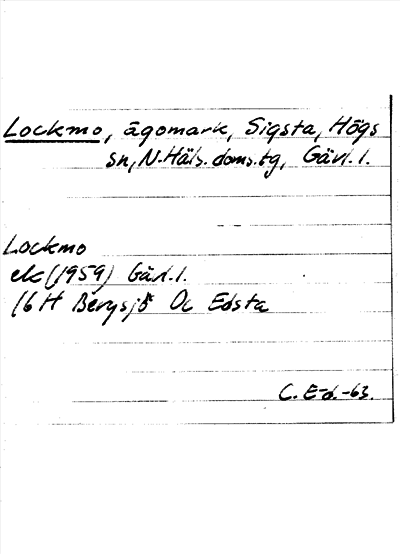 Lockmo, ägomark, Sigsta, Högs
sn, N.Häls. doms.tg, Gävl. l.
Lockmo
ek (1959) Gävl. l.
16 H Bergsjö Oc Edsta
C. E-d.-63.